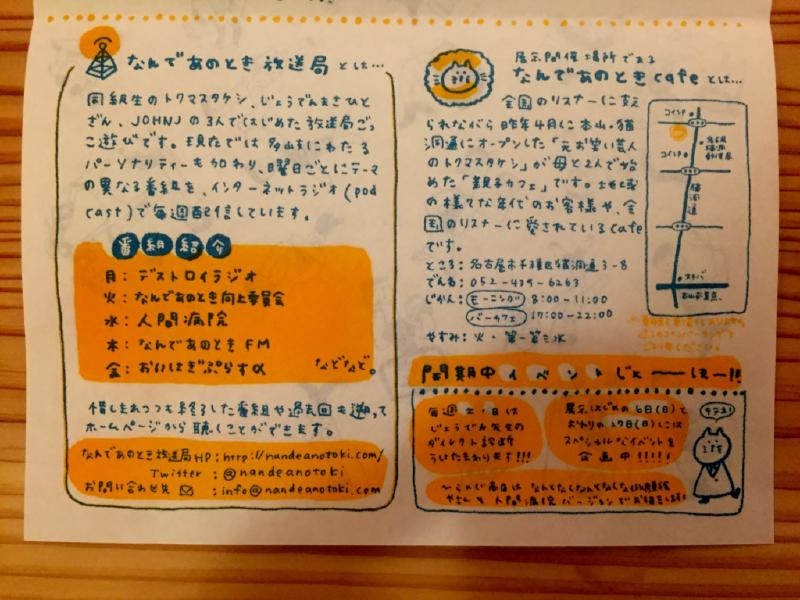 なんであのとき放送局とは…
同級生のトクマスタケシ、じょうでんまさひと
ざん、JOHNJの3人ではじめた放送局ごっ
こ遊びです。現在では多岐にわたる
パーソナリティーも加わり、曜日ごとにテーマ
の異なる番組を、インターネットラジオ(pod
cast)で毎週配信しています。
番組紹介
月:デストロイラジオ
火:なんであのとき向上委員会
水:人間病院
木:なんであのときFM
金:おいはぎぷらすα
などなど。
惜しまれつつも終了した番組や過去回も遡って
ホームページから聴くことができます。
なんであのとき放送局HP:http://nandeanotoki.com/
Twitter:@nandeanotoki
お問い合わせ先:info@nandeanotoki.com
展示開催場所である
なんであのときcafeとは…
全国のリスナーに支え
られながら昨年4月に本山・猫
洞通にオープンした「元お笑い芸人
のトクマスタケシ」が母と2人で始
めた「親子カフェ」です。地域
の様々な年代のお客様や、全
国のリスナーに愛されているcafe
です。
ところ:名古屋市千種区猫洞通3-8
でんわ:052-439-6263
じかん:モーニング 8:00-11:00
バーカフェ 17:00-22:00
やすみ:火・第一第三水
コインP
コインP
猫洞通
スギバ
本山交差点
開期中イベントじょーほー!!
毎週土・日は
じょうでん先生の
ダイレクト診断
うけたまわります!!!
展示はじめの6日(日)と
おわりの27日(日)には
スペシャルなイベントを
企画中!!!!!